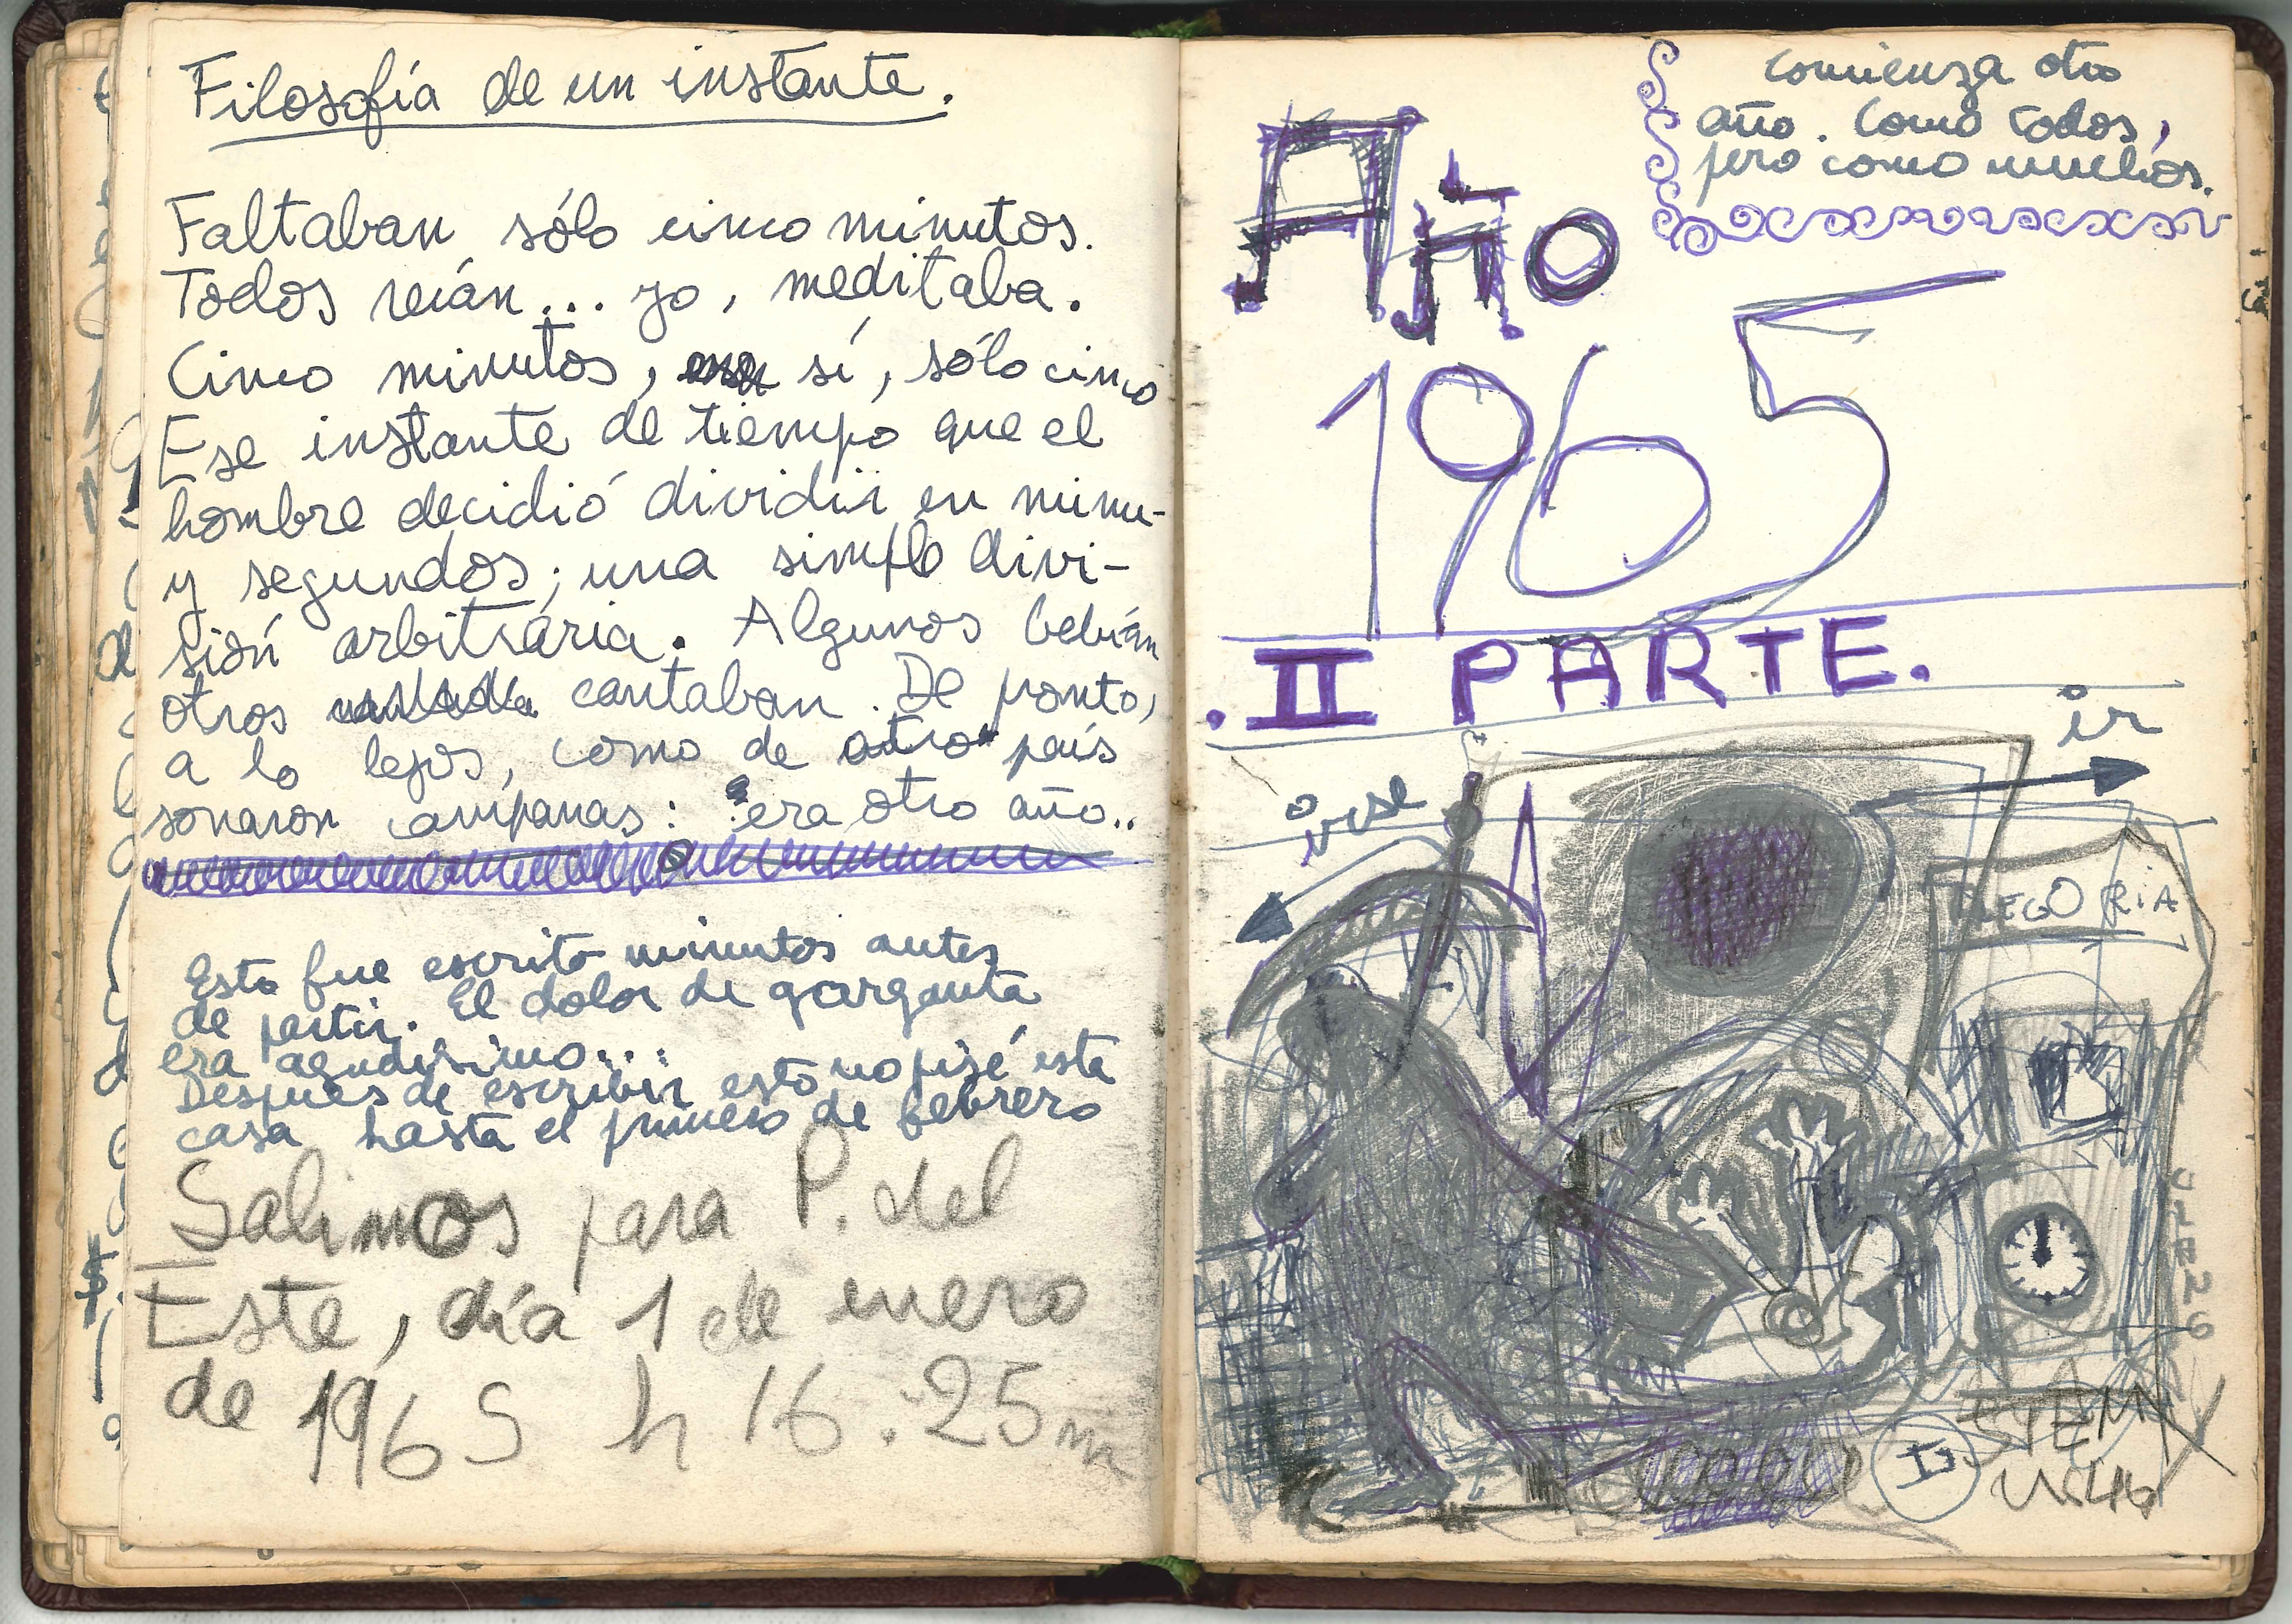 Filosofía de un instante.
Faltaban sólo cinco minutos.
Todos reían... yo, meditaba.
Cinco minutos, sí, sólo cinco
Ese instante de tiempo que el
hombre decidió dividir en minu-
y segundos; una simple divi-
sión arbitraria. Algunos bebían
otros cantaban. De pronto,
a lo lejos, como de otro país
sonaron campanas: era otro año..
Esto fue escrito minutos antes
de partir. El dolor de garganta
era agudísimo...
Después de escribir esto no pisé esta
casa hasta el primero de febrero
Salimos para P. del
Este, día 1 de enero
de 1965 h 16.25m
comienza otro
año. Como todos,
pero como muchos.
Año
1965
.II PARTE.
ir
irse